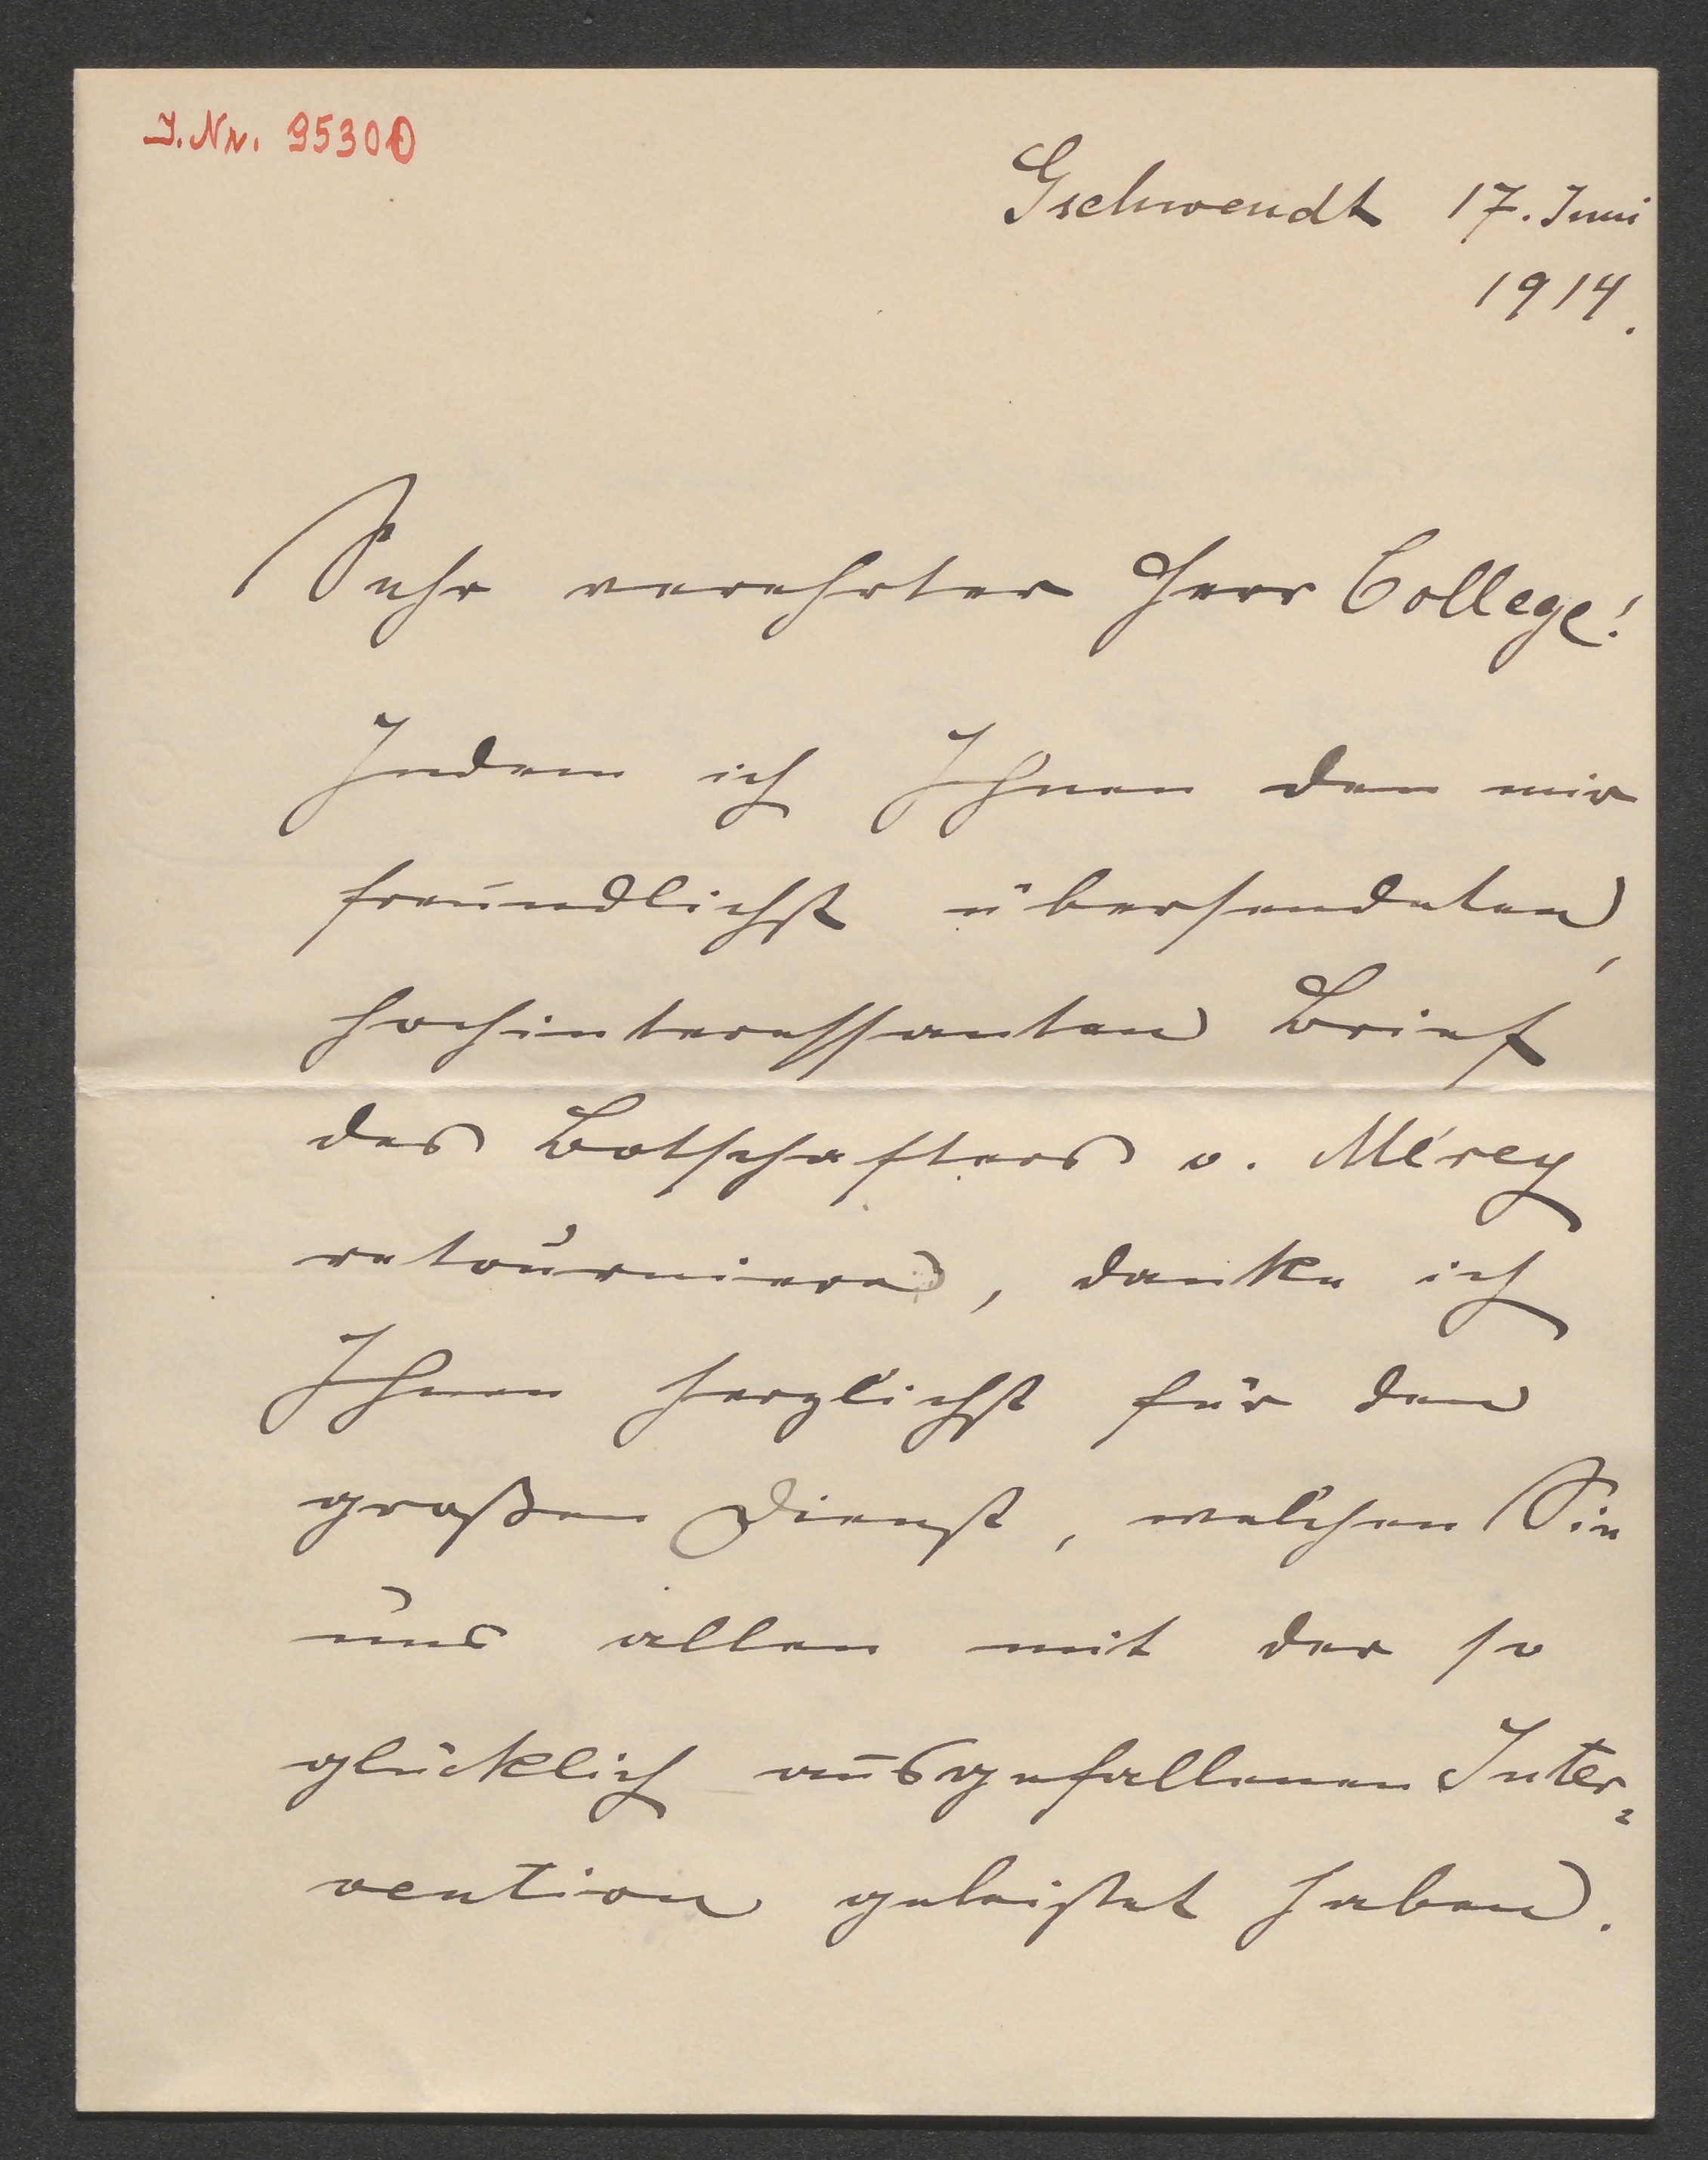 I. Nr. 95300
Gschwendt 17. Juni
1914.
Sehr verehrter Herr College!
Indem ich Ihnen den mir
freundlichst übersendeten,
hochinteressanten Brief
des Botschafters v. Mérey
retourniere, danke ich
Ihnen herzlichst für den
großen Dienst, welchen Sie
uns allen mit der so
glücklich ausgefallenen Inter=
vention geleistet haben.